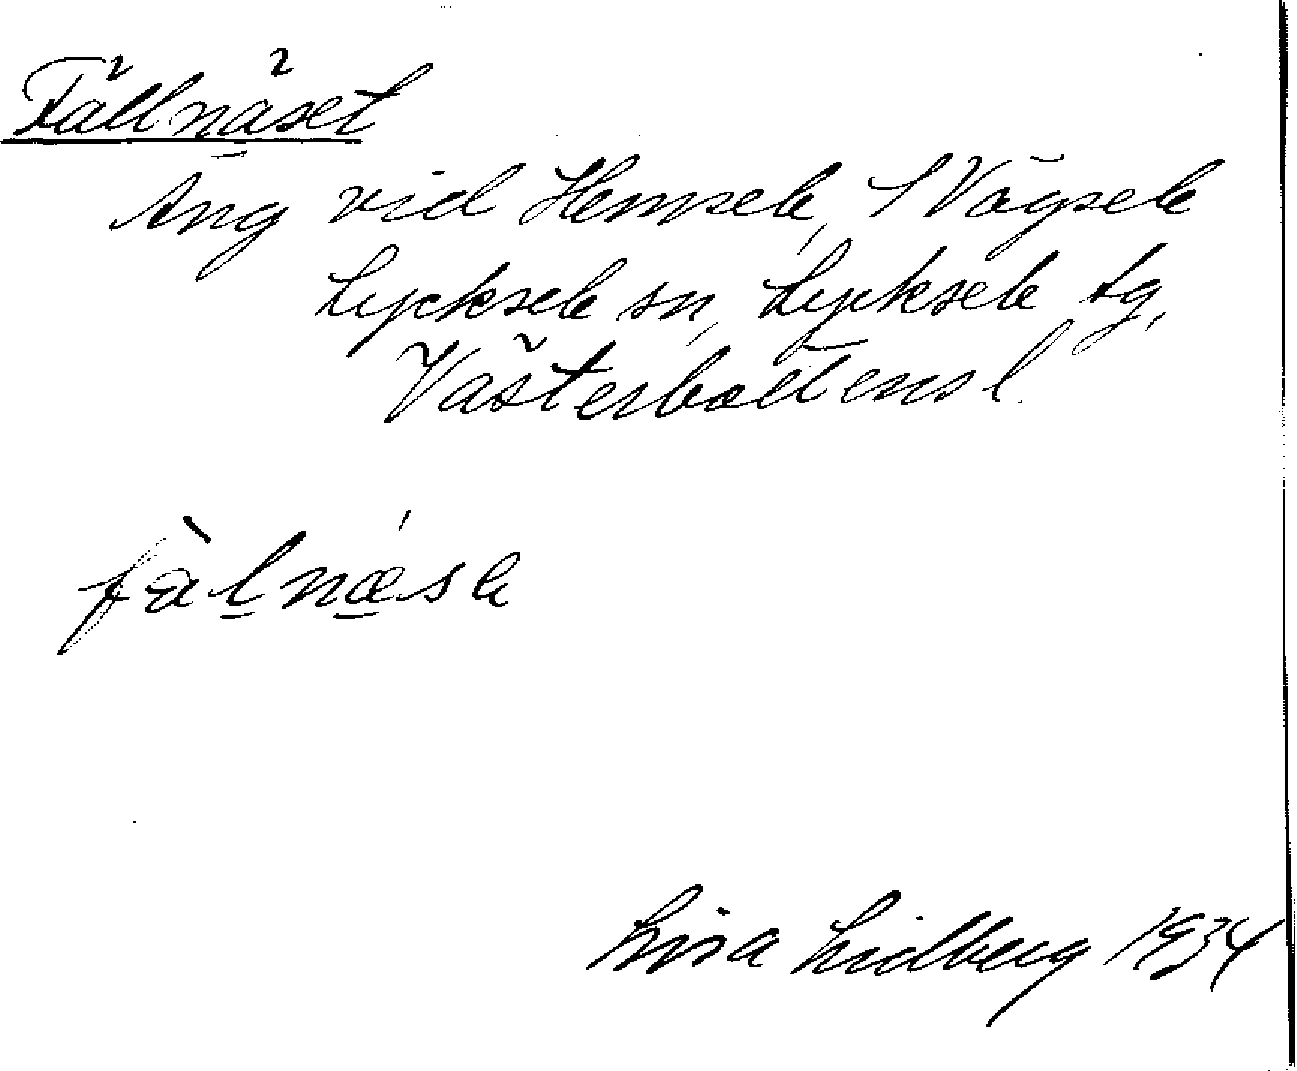 Fällnäset
Äng vid Hemsele, V Vägsele
Lycksele sn, Lycksele tg,
Västerbottensl.
fàlnæsle
Lisa Lidberg 1934